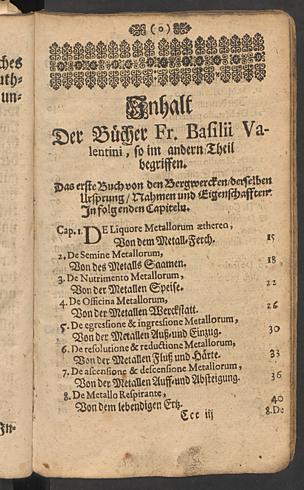 (o)
Inhalt
Der Bücher Fr. Basilii Va-
lentini, so im andern Theil
begriffen.
Das erste Buch von den Bergwercken/derselben
Ursprung/Nahmen und Eigenschafften
In folgenden Capiteln.
Cap. 1. DE Liquore Metallorum æthereo,
Von dem Metall-Ferch. 15
2. De Semine Metallorum,
Von des Metalls Saamen. 18
3. De Nutrimento Metallorum,
Von der Metallen Speise. 22
4. De Officina Metallorum,
Von der Metallen Werckstatt. 26
5. De egressione & ingressione Metallorum,
Von der Metallen Auß- und Einzug. 30
6. De resolutione & reductione Metallorum,
Von der Metallen Fluß und Härte. 33
7. De ascensione & descensione Metallorum,
Von der Metallen Auff- und Absteigung. 36
8. De Metallo Respirante,
Von dem lebendigen Ertz. 40
Ccc iij 8. De
ches
uth-
un-
In-